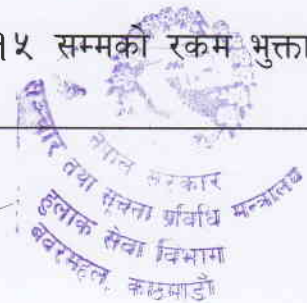 १५ सम्मको रकम भुक्ता
नेपाल सरकार
सञ्चार तथा सूचना प्रविधि मन्त्रालय
हुलाक सेवा विभाग
बबरमहल, काठमाडौं